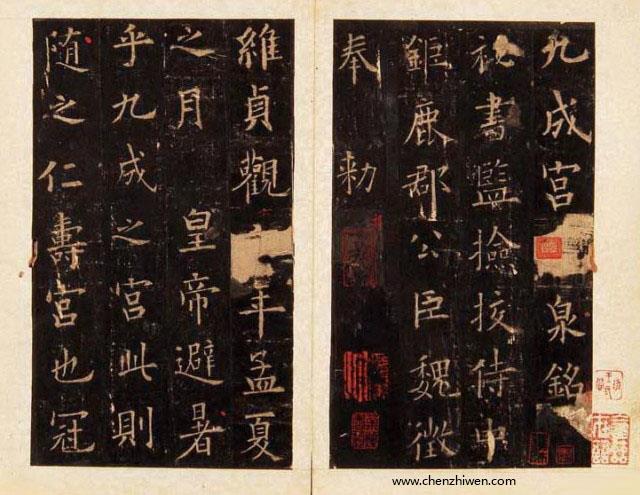 九成宮 泉銘
祕書監撿挍侍中
鉅鹿郡公臣魏徵
奉 敕
維貞觀 年孟夏
之月 皇帝避暑
乎九成之宮此則
随之仁壽宮也冠
www.chenzhiwen.com